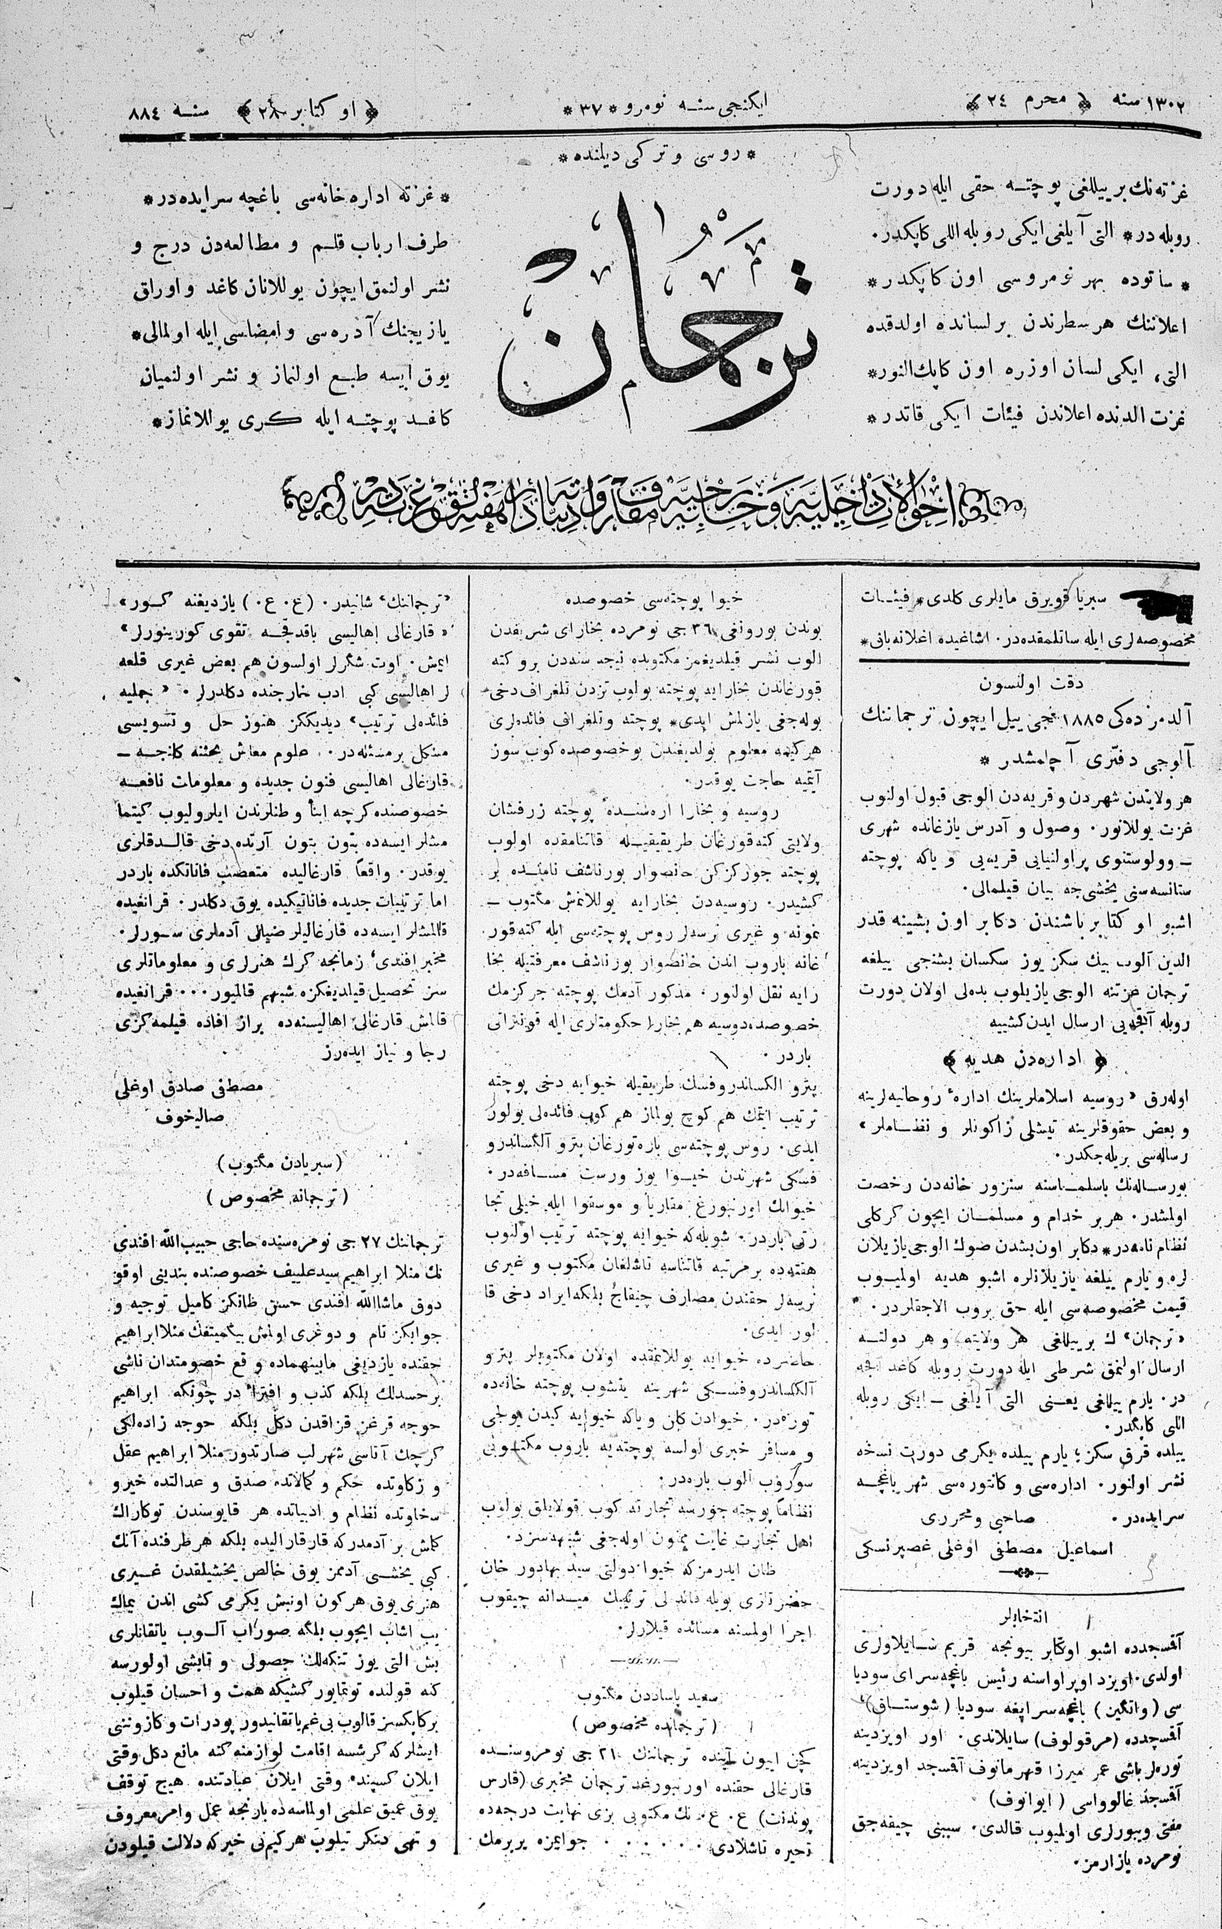 ١٣٠٢ سنه ﴿ محرم ٢٤ ﴾
ایكنجی سنه نومرو *٣٧*
﴿ اوكتابر ٢٨ ﴾ سنه ٨٨٤
* روسی و تركی دیلنده *
غزته‌نك بر ییللغی پوچته حقی ایله دورت
روبله در* التی آیلغی ایكی روبله اللی كاپكدر.
* ساتوده بهر نومروسی اون كاپكدر*
اعلاننك هر سطرندن بر لسانده اولدقده
التی، ایكی لسان اوزره اون كاپك النور*
غزت الدنده اعلاندن فیئات ایكی قاتدر*
ترجمان
* غزته اداره خانه‌سی باغچه سرایده‌در*
طرف ارباب قلم و مطالعه‌دن درج و
نشر اولنمق ایچون یوللانان كاغد و اوراق
یازیجنك آدره‌سی و امضاسی ایله اولمالی*
یوق ایسه طبع اولنماز و نشر اولنمیان
كاغد پوچته ایله كری یوللانماز*
سبریا قرویرق مایلری كلدی* فیئات
مخصوصه‌لری ایله ساتلمقده‌در. اشاغیده اعلانه باق*
دقت اولنسون
آلدمزده‌كی ١٨٨٥ نجی ییل ایچون ترجماننك
آلوجی دفتری آچلمشدر *
هر ولایتدن شهردن و قریه‌دن الوجی قبول اولنوب
غزت یوللانور. وصول و آدرس یازغانده شهری
ـ وولوستنوی پراولنیایی قریه‌یی و یاكه پوچته
ستانسه‌سنی یخشی‌جه بیان قیلمالی.
اشبو اوكتابر باشندن دكابر اون بشینه قدر
الدین آلوب بیك سكز یوز سكسان بشنجی ییلغه
ترجمان غزتنه الوجی یازیلوب بدلی اولان دورت
روبله آقچه‌یی ارسال ایدن كشییه
﴿ اداره‌دن هدیه ﴾
اوله‌رق «روسیه اسلاملرینك اداره‌ٔ روحانیه‌لرینه
و بعض حقوقلرینه تیشلی زاكونلر و نظاملر»
رساله‌سی بریله‌جكدر.
بورساله‌نك باسلماسنه سنزور خانه‌دن رخصت
اولمشدر. هر بر خدام و مسلمان ایچون كركلی
نظام نامه‌در* دكابر اون بشدن صوك الوجی یازیلان
لره و یارم ییلغه یازیلانلره اشبو هدیه اولمیوب
قیمت مخصوصه‌سی ایله حق بروب الاجقلردر.
«ترجمان» ك بر ییللغی هر ولایته و هر دولته
ارسال اولنمق شرطی ایله دورت روبله كاغد اقچه
در. یارم ییللغی یعنی التی آیلغی ـ ایكی روبله
اللی كاپكدر.
ییلده قرق سكز؛ یارم ییلده یكرمی دورت نسخه
نشر اولنور. اداره‌سی و كانتوره‌سی شهر باغچه
سرایده‌در. صاحبی و محرری
اسماعیل مصطفی اوغلی غصپرنسكی
انتخابلر
آقسجدده اشبو اوكتابر بیونجه قریم سایلاولری
اولدی. اویزد اوپراواسنه رئیس باغچه‌سرای سودیا
سی (وانگین) باغچه‌سرایغه سودیا (شوستاق)
آقسجدده (مرقولوف) سایلاندی. اور اویزدینه
توره‌لر باشی عمر میرزا قهرمانوف آقسجد اویزدینه
آقسجد غالوواسی (ایوانوف)
مفتی ویبورلری اولمیوب قالدی. سببنی چیقه‌جق
نومرده یازارمز.
خیوا پوچته‌سی خصوصده
بوندن بورونغی ٣٦ جی نومرده بخارای شریفدن
الوب نشر قیلدیغمز مكتوبده نیجه سنه‌دن برو كته
قورغاندن بخارایه پوچته بولوب تزدن تلغراف دخی
بوله‌جغی یازلمش ایدی* پوچته و تلغراف فائده‌لری
هر كیمه معلوم بولدیغندن بو خصوصده كوب سوز
آیتمیه حاجت یوقدر.
روسیه و بخارا اره‌سنده پوچته زرفشان
ولایتی كته‌قورغان طریقیله قاتنامقده اولوب
پوچته جورگزكن حانصوار بورناشف نامنده بر
كشیدر. روسیه‌دن بخارایه یوللانمش مكتوب ـ
نمونه و غیری نرسه‌لر روس پوچته‌سی ایله كته‌قور
غانه باروب اندن خانصوار بورناشف معرفتیله بخا
رایه نقل اولنور. مذكور آدمك پوچته جركزمك
خصوصده روسیه هم بخارا حكومتلری ایله قونتراتی
باردر.
پترو الكساندروفسك طریقیله خیوایه دخی پوچته
ترتیب ایتمك هم كوچ بولماز هم كوب فائده‌لی بولور
ایدی. روس پوچته‌سی باره‌تورغان پترو آلكساندرو
فسكی شهرندن خیوا یوز ورست مسافه‌در.
خیوانك اورنبورغ مقاریا و موسقوا ایله خیلی تجا
رتی باردر. شویله‌كه خیوایه پوچته ترتیب اولنوب
هفته‌ده بر مرتبه قاتناسه تاشلغان مكتوب و غیری
نرسه‌لر حقندن مصارف چیقاچ بلكه ایراد دخی قا
لور ایدی.
حاضرده خیوایه یوللانمقده اولان مكتوبلر پترو
آلكساندروفسكی شهرینه یتشوب پوچته خانه‌ده
توره‌در. خیوادن كلن و یاكه خیوایه كیدن یولجی
و مسافر خبری اولسه پوچته‌یه باروب مكتوبنی
سوروب الوب باره‌در.
نظاما پوچته جورسه تجارته كوب قولایلق بولوب
اهل تجارت غایت ممنون اوله‌جغی شبهه‌سزد.
ظن ایدرمزكه خیوا دولتی سید بهادور خان
حضرتلری بویله فائده‌لی ترتیبك میدانه چیقوب
اجرا اولمسنه مسائده قیلارلر.
سعید پاساددن مكتوب
(ترجمانده مخصوص)
كچن ایون آینده ترجماننك ٢١ جی نومروسنده
قارغالی حقنده اورنبورغد ترجمان مخبری (قارس
پوندنت) ع. ع. نك مكتوبی بزی نهایت درجه‌ده
تحیره تاشلادی. . . . . . . جوابمزه یر برمك
«ترجماننك» شانیدر. (ع. ع.) یازدیغنه كوره
«قارغالی اهالیسی باقدقچه تقوی كورینورلر»
ایمش. اوت شگرلر اولسون هم بعض غیری قلعه
لر اهالیسی كبی ادب خارجنده دكلدرلر. «جملیه
فائده‌لی ترتیب» دیدیككز هنوز حل و تسویسی
مشكل بر مسئله‌در. علوم معاش بحثنه كلنجه ـ
قارغالی اهالیسی فنون جدیده و معلومات نافعه
خصوصنده كرچه ابنا و طنلرندن ایلرولیوب كیتما
مشلر ایسه‌ده بتون بتون آرتده دخی قالدقلری
یوقدر. واقعاً قارغالیده متعصب فاناتكده باردر
اما ترتیبات جدیده فاناتیكیده یوق دكلدر. قرانغیده
قالمشلر ایسه‌ده قارغالیلر ضیالی آدملری سورلر.
مخبر افندی، زمانجه كرك هنرلری و معلوماتلری
سز تحصیل قیلدیغكزه شبهم قالمیور... قرانغیده
قالمش قارغالی اهالیسنه‌ده براز افاده قیلمه‌كزی
رجا و نیاز ایده‌رز
مصطفی صادق اوغلی
صالیخوف
(سبریادن مكتوب)
(ترجمانه مخصوص)
ترجماننك ٢٧ جی نومره‌سنده حاجی حبیب‌الله افندی
نك منلا ابراهیم سیدعلییف خصوصنده بندینی اوقو
دوق ماشاالله افندی حسن ظانكز كامیل توجیه و
جوابكز تام و دوغری اولمش بیكمیتفك منلا ابراهیم
حقنده یازدیغی مابینهماده وقع خصومتدان ناشی
بر حسدلك بلكه كذب و افترا در چونكه ابراهیم
حوجه قرغز قزاقدن دكل بلكه حوجه زاده‌لكی
كرچك آتاسی شهرلب صارتدور منلا ابراهیم عقل
و زكاوتده حكم و كمالاتده صدق و عدالتده خیرو
سخاوتده نظام و ادبیاتده هر قایوسندن توكاراك
كماش بر آدمدركه قارقارالیده بلكه هر طرفنده آنك
كبی یخشی آدممز یوق خالص یخشیلقدن غیری
هنری یوق هركون اونبش یكرمی كشی اندن یمك
یب اشاب ایچوب بلكه صوراب آلوب یاتقانلری
بش التی یوز تنكه‌لك حصولی و قابشی اولورسه
كنه قولنده توتمایور كشیكه همت و احسان قیلوب
بر كاپكسز قالوب بی غم یاتقانیدور پودرات و كازوننی
ایشلركه كرشسه اقامت لوازمنه كنه مانع دكل وقتی
ایلان كسپنده وقتی ایلان عبادتنده هیچ توقف
یوق عمیق علمی اولماسه‌ده بارنجه عمل و امر معروف
و نهی منكر قیلوب هر كیم‌نی خیركه دلالت قیلودن